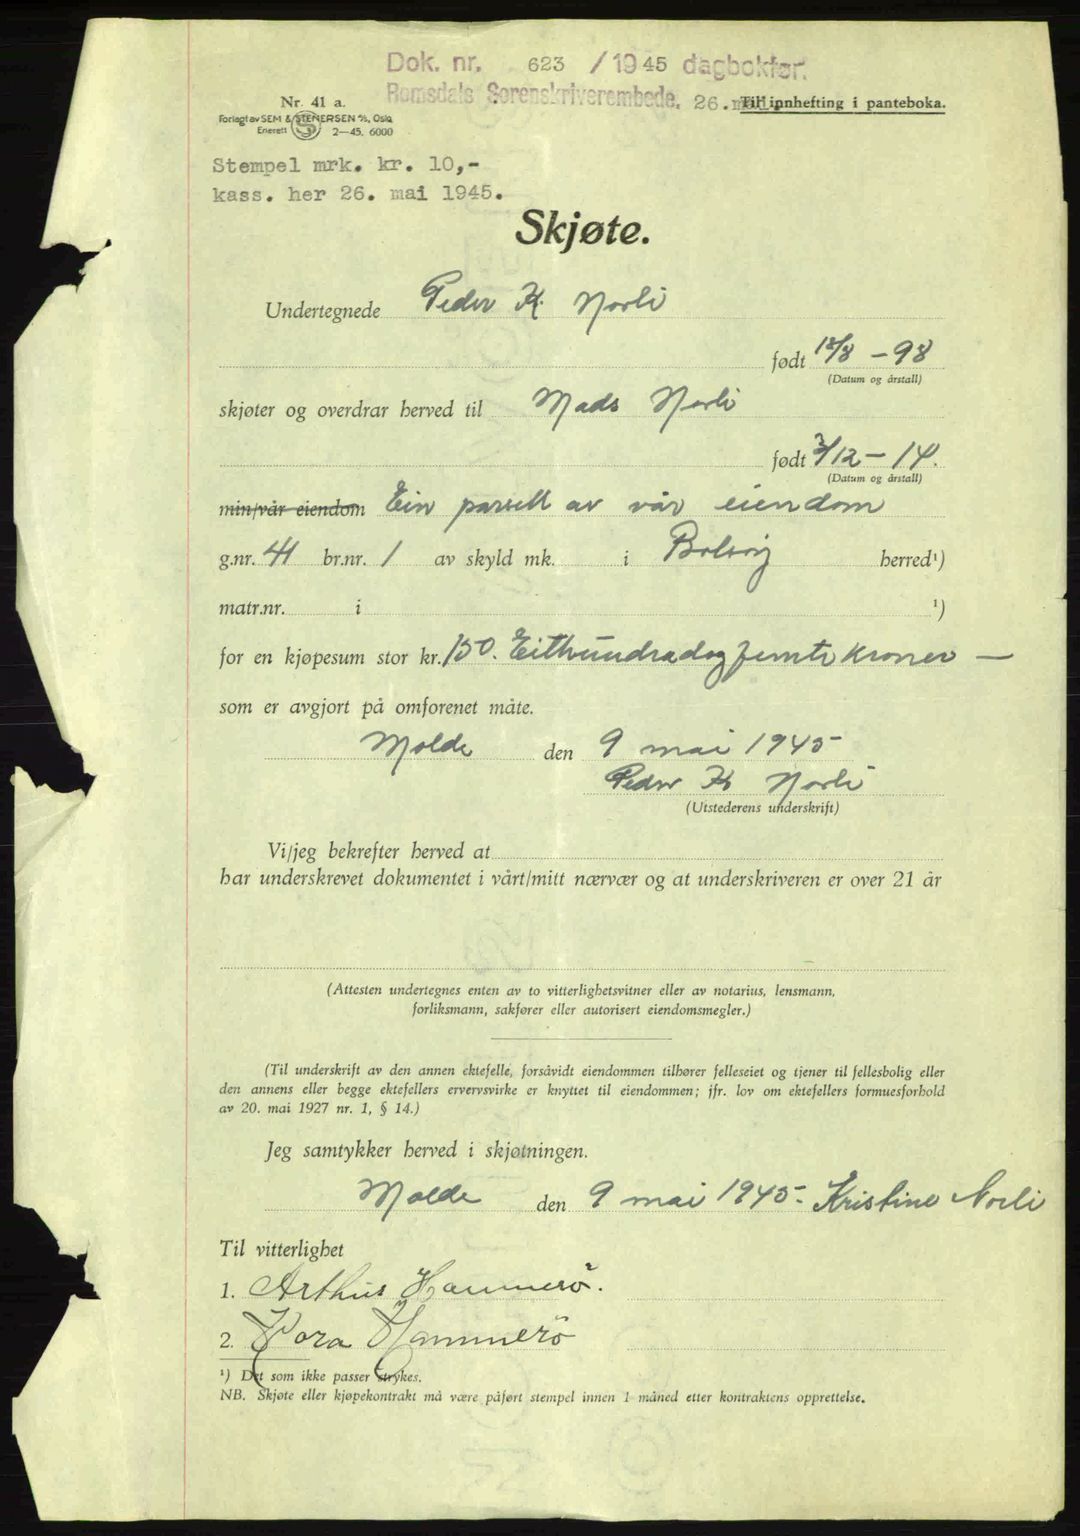 Dok. nr. 623 / 1945 dagbokfør.
Romsdals Sorenskriverembede. 26. mai.
Til innhefting i panteboka.
Nr. 41 a.
Forlagt av SEM & STENERSEN A/S, Oslo
Enerett S 2—45. 6000
Stempel mrk. kr. 10,-
kass. her 26. mai 1945.
Skjøte.
Undertegnede Peder K. Norli
født 12/8 - 98
(Datum og årstall)
skjøter og overdrar herved til Mads Norli
født 3/12 - 14.
(Datum og årstall)
min/vår eiendom Ein parsell av vår eiendom
g.nr. 41 br.nr. 1 av skyld mk. i Bolsøy herred¹)
matr.nr. i ¹)
for en kjøpesum stor kr. 150. Eithundradogfemti kroner —
som er avgjort på omforenet måte.
Molde den 9 mai 1945
Peder K Norli
(Utstederens underskrift)
Vi/jeg bekrefter herved at
har underskrevet dokumentet i vårt/mitt nærvær og at underskriveren er over 21 år
(Attesten undertegnes enten av to vitterlighetsvitner eller av notarius, lensmann,
forliksmann, sakfører eller autorisert eiendomsmegler.)
(Til underskrift av den annen ektefelle, forsåvidt eiendommen tilhører felleseiet og tjener til fellesbolig eller
den annens eller begge ektefellers ervervsvirke er knyttet til eiendommen; jfr. lov om ektefellers formuesforhold
av 20. mai 1927 nr. 1, § 14.)
Jeg samtykker herved i skjøtningen.
Molde den 9 mai 1945. Kristine Norli
Til vitterlighet
1. Arthur Hammerö.
2. Kora Hammerö
¹) Det som ikke passer strykes.
NB. Skjøte eller kjøpekontrakt må være påført stempel innen 1 måned etter kontraktens opprettelse.